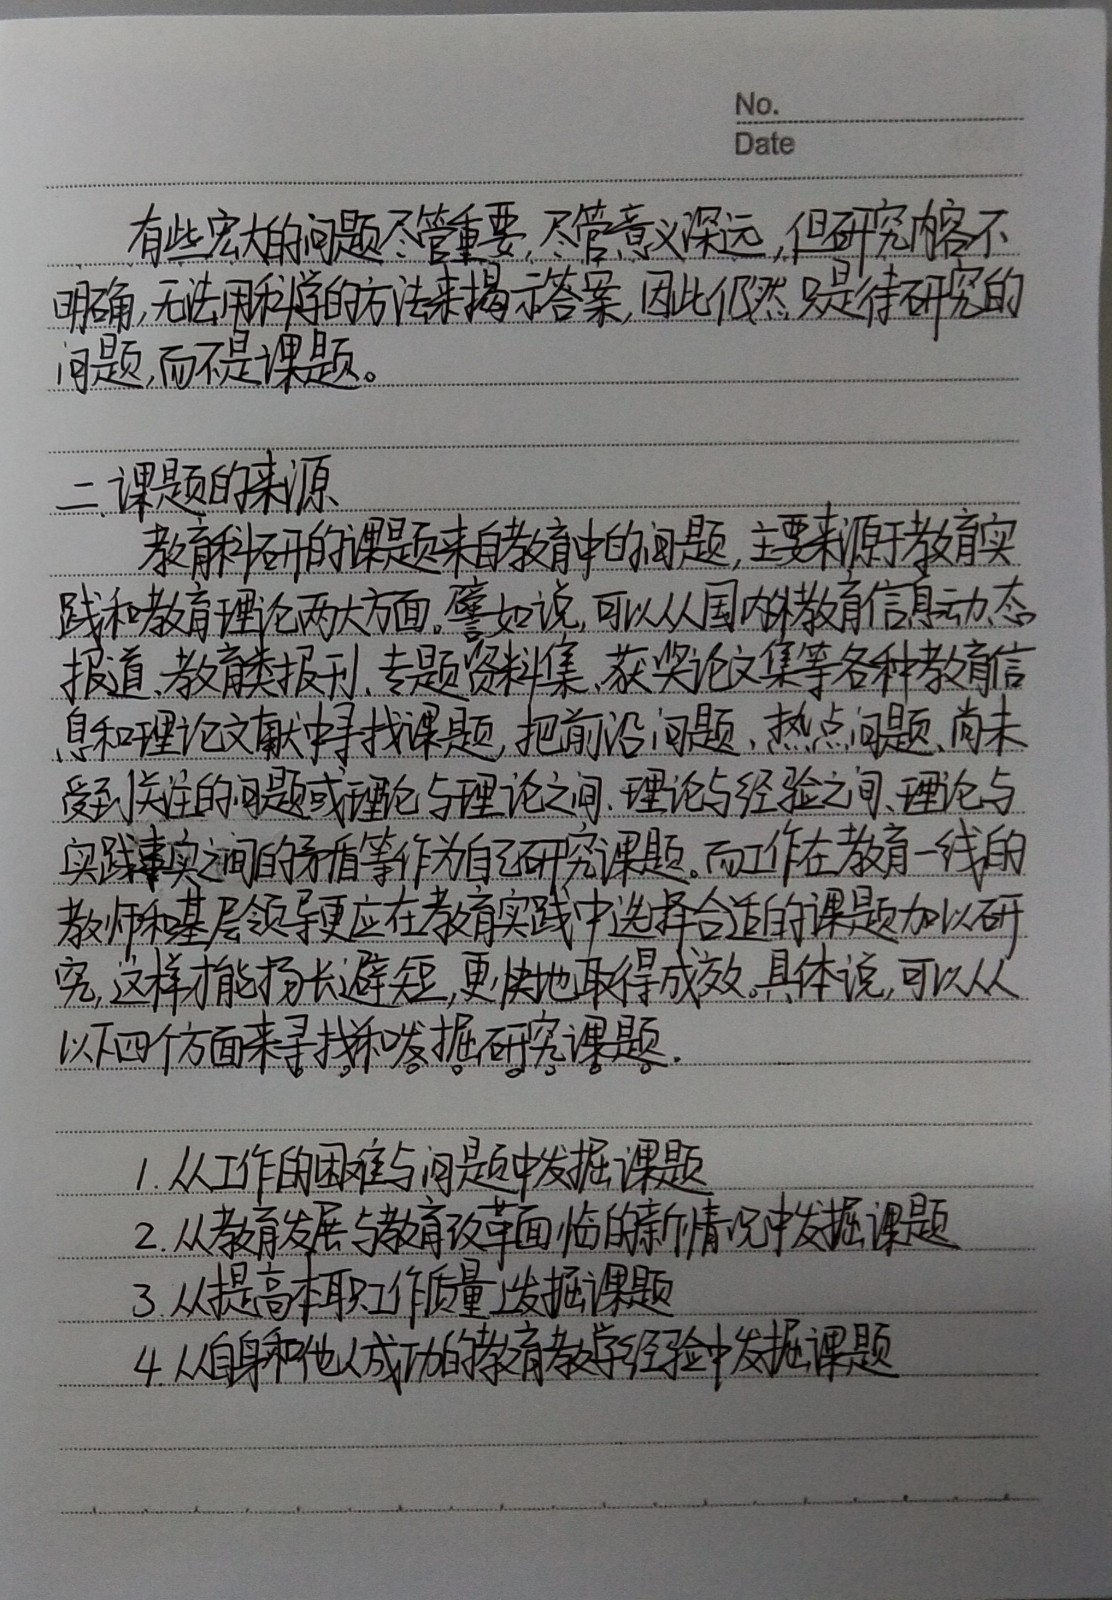 No.
Date
有些宏大的问题尽管重要,尽管意义深远,但研究内容不
明确,无法用科学的方法来揭示答案,因此仍然只是待研究的
问题,而不是课题。
二、课题的来源
教育科研的课题来自教育中的问题,主要来源于教育实
践和教育理论两大方面。譬如说,可以从国内外教育信息动态
报道、教育类报刊、专题资料集、获奖论文集等各种教育信
息和理论文献中寻找课题,把前沿问题、热点问题、尚未
受到关注的问题或理论与理论之间、理论与经验之间、理论与
实践事实之间的矛盾等作为自己研究课题。而工作在教育一线的
教师和基层领导更应在教育实践中选择合适的课题加以研
究,这样才能扬长避短,更快地取得成效。具体说,可以从
以下四个方面来寻找和发掘研究课题.
1.从工作的困难与问题中发掘课题
2.从教育发展与教育改革面临的新情况中发掘课题
3.从提高本职工作质量上发掘课题
4.从自身和他人成功的教育教学经验中发掘课题